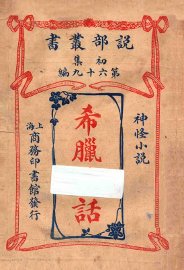 說部叢書
初集
第六十九編
神怪小說
希臘
話
上海商務印書館發行